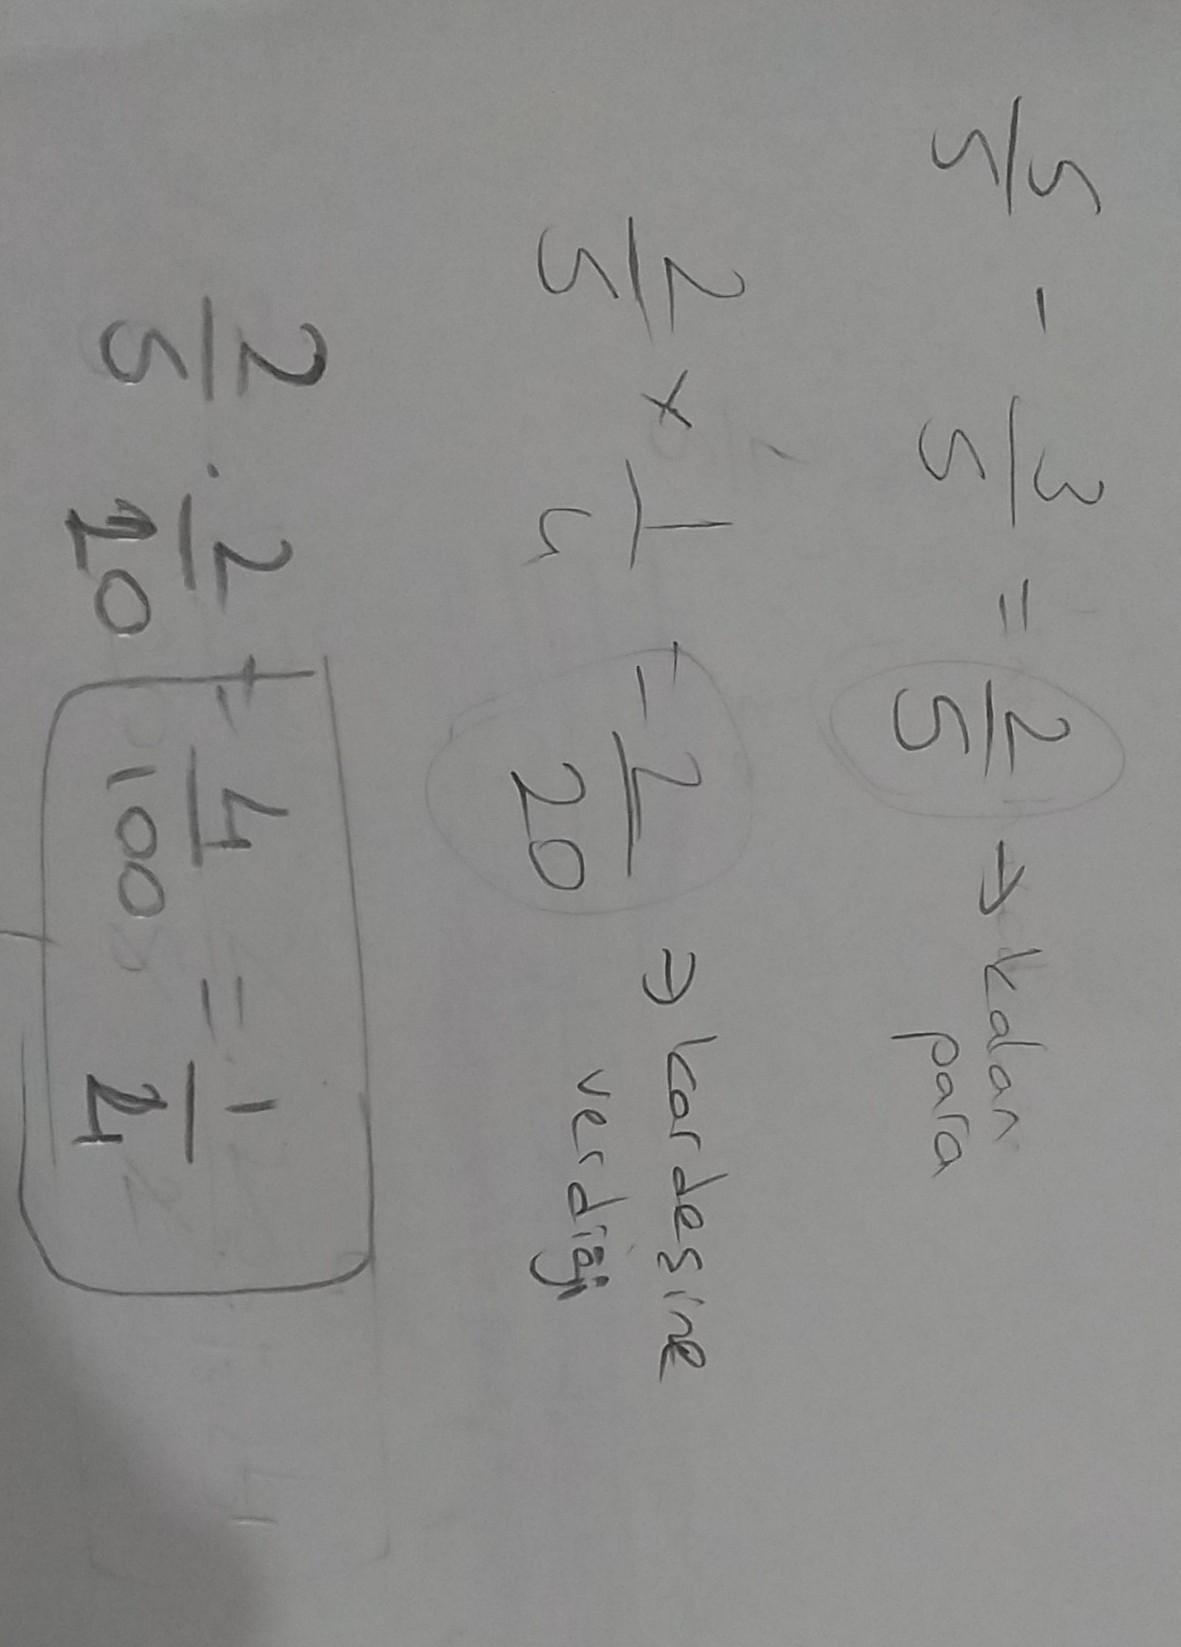 5/5 - 3/5 = 2/5 → kalan
para
2/5 x 1/4 = 2/20 → kardeşine
verdiği
2/5 . 2/20 = 4/100 = 1/4